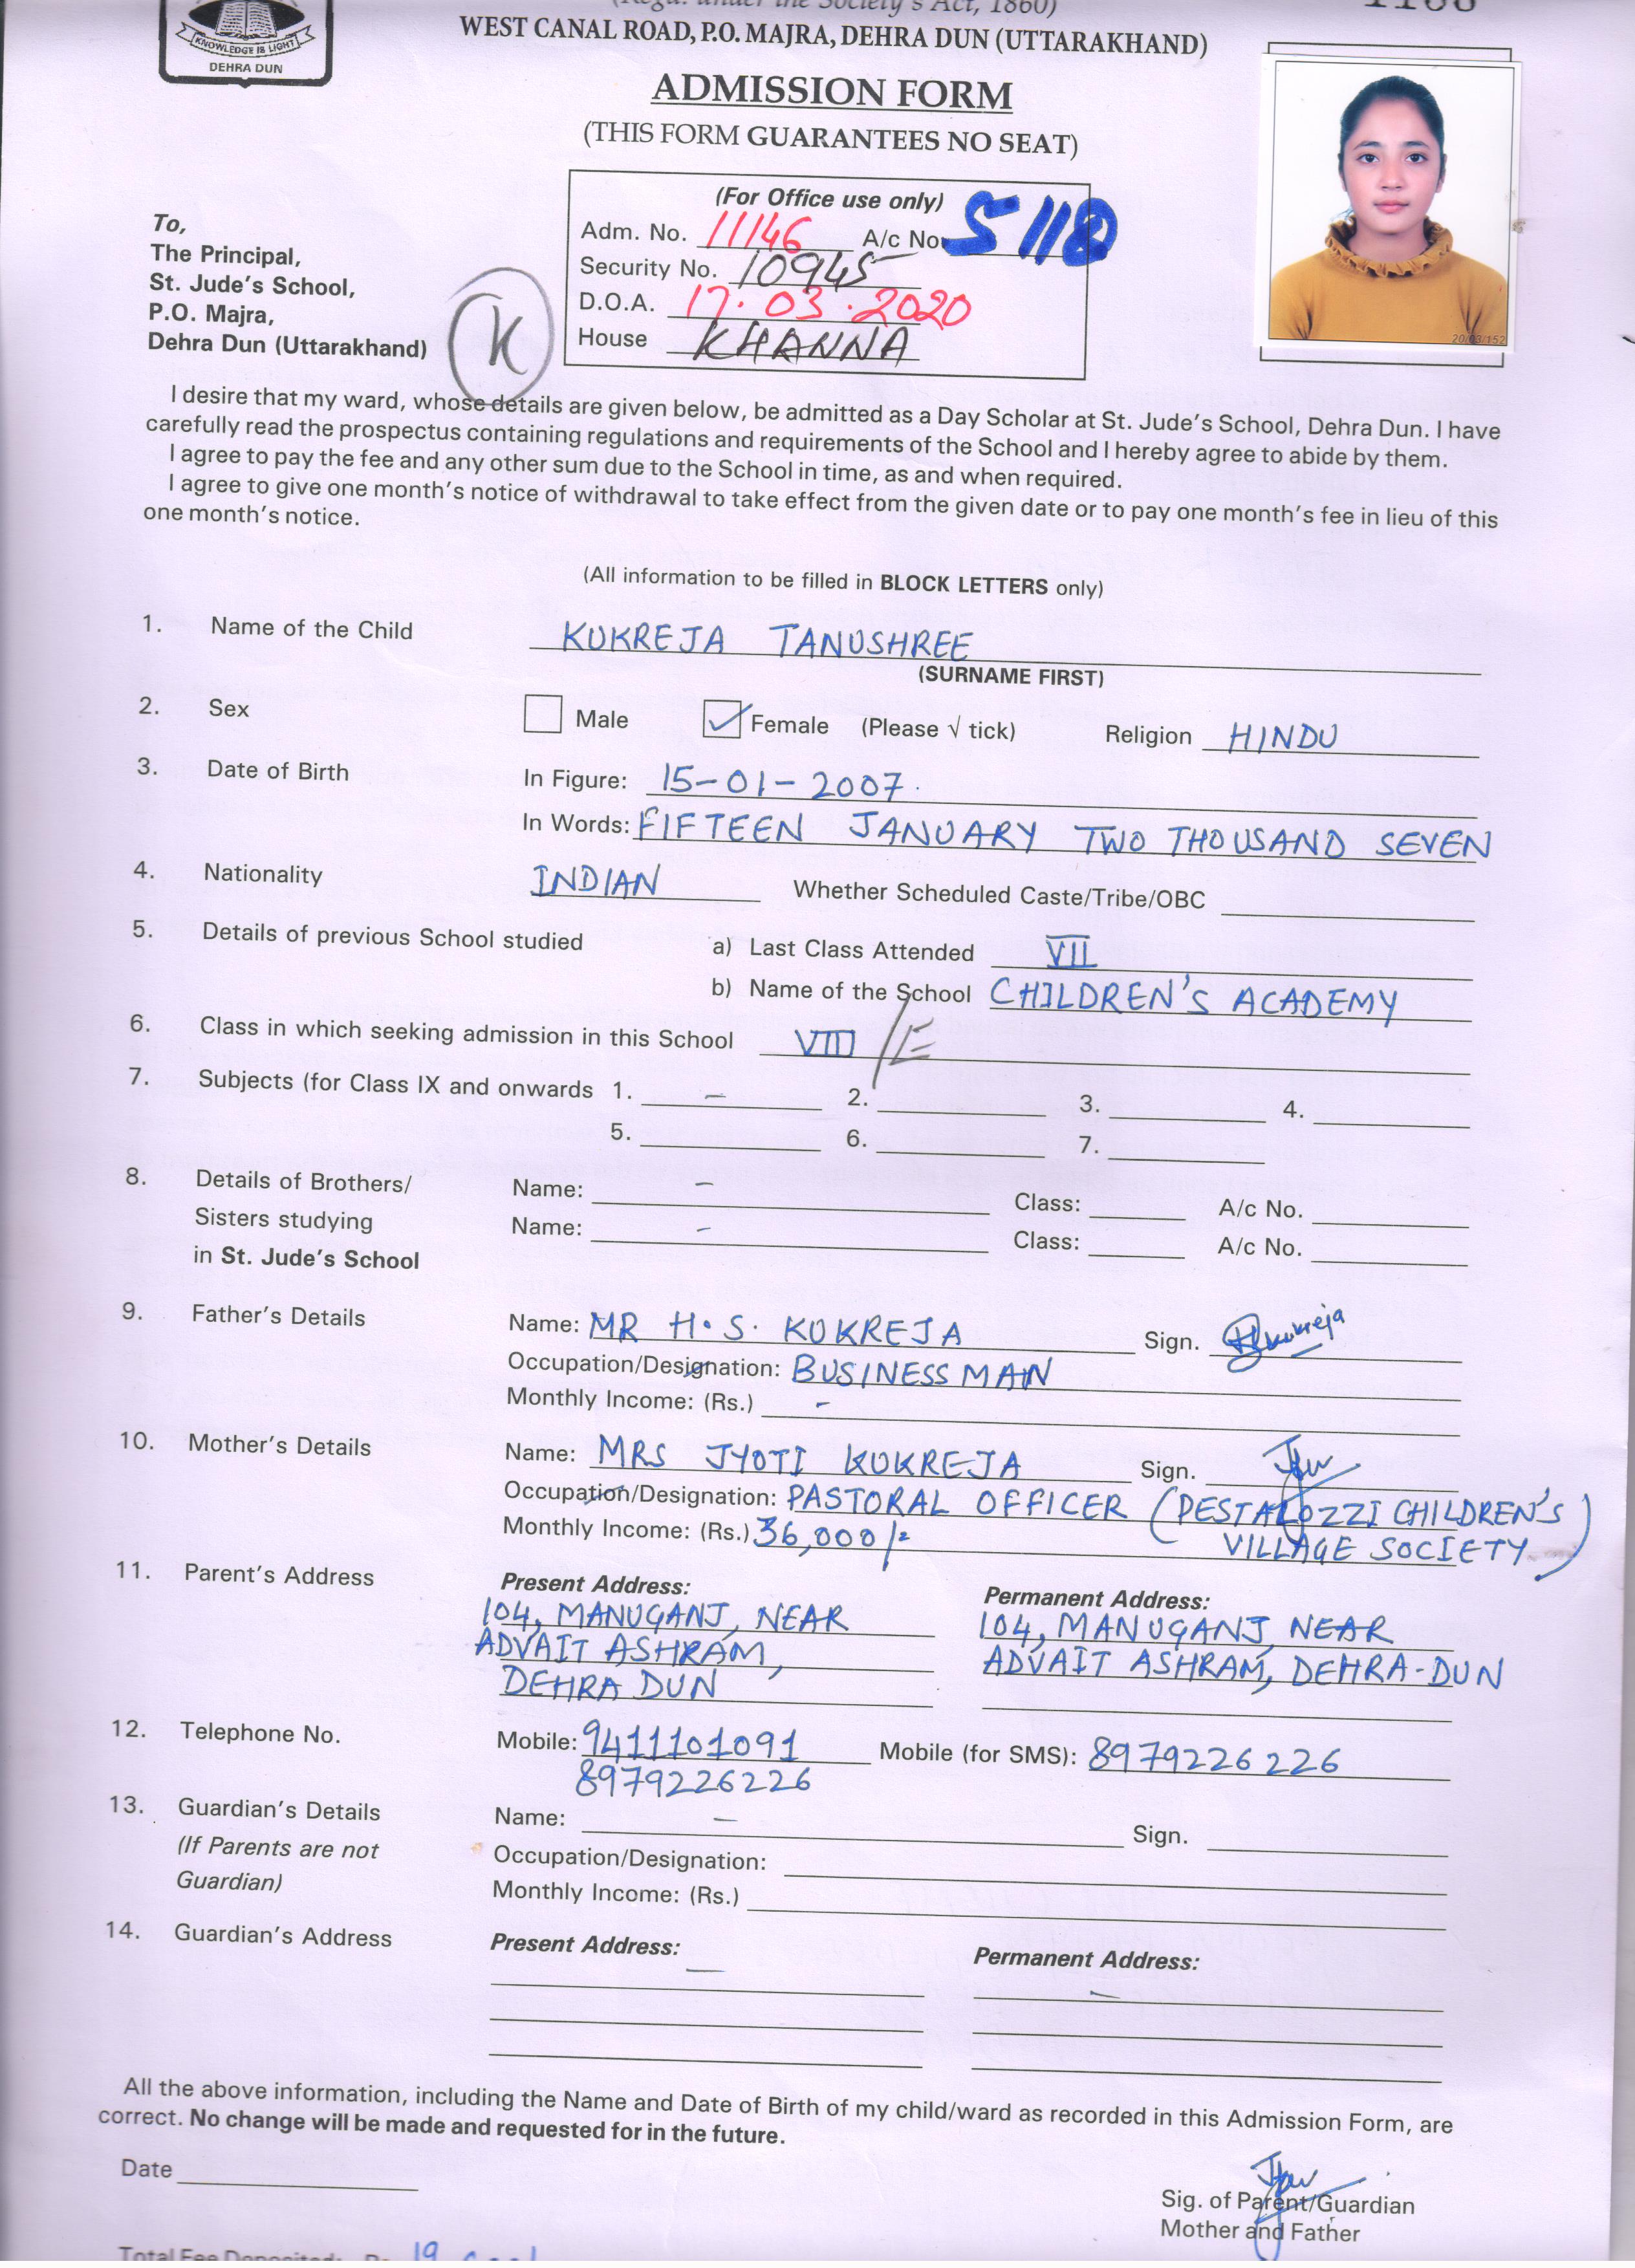 (Regd. under the Society's Act, 1860)
KNOWLEDGE IS LIGHT
DEHRA DUN
WEST CANAL ROAD, P.O. MAJRA, DEHRA DUN (UTTARAKHAND)
ADMISSION FORM
(THIS FORM GUARANTEES NO SEAT)
(For Office use only)
Adm. No. 11146 A/c No. 5118
Security No. 10945
D.O.A. 17.03.2020
House KHANNA
20/03/152
To,
The Principal,
St. Jude's School,
P.O. Majra,
Dehra Dun (Uttarakhand)
K
I desire that my ward, whose details are given below, be admitted as a Day Scholar at St. Jude's School, Dehra Dun. I have
carefully read the prospectus containing regulations and requirements of the School and I hereby agree to abide by them.
I agree to pay the fee and any other sum due to the School in time, as and when required.
I agree to give one month's notice of withdrawal to take effect from the given date or to pay one month's fee in lieu of this
one month's notice.
(All information to be filled in BLOCK LETTERS only)
1. Name of the Child KUKREJA TANUSHREE
(SURNAME FIRST)
2. Sex Male Female (Please √ tick) Religion HINDU
3. Date of Birth In Figure: 15-01-2007.
In Words: FIFTEEN JANUARY TWO THOUSAND SEVEN
4. Nationality INDIAN Whether Scheduled Caste/Tribe/OBC
5. Details of previous School studied a) Last Class Attended VII
b) Name of the School CHILDREN'S ACADEMY
6. Class in which seeking admission in this School VIII /E
7. Subjects (for Class IX and onwards 1. - 2. 3. 4.
5. 6. 7.
8. Details of Brothers/ Name: - Class: A/c No.
Sisters studying Name: - Class: A/c No.
in St. Jude's School
9. Father's Details Name: MR H.S. KUKREJA Sign. Kukreja
Occupation/Designation: BUSINESS MAN
Monthly Income: (Rs.) -
10. Mother's Details Name: MRS JYOTI KUKREJA Sign.
Occupation/Designation: PASTORAL OFFICER (PESTALOZZI CHILDREN'S
Monthly Income: (Rs.) 36,000/- VILLAGE SOCIETY)
11. Parent's Address Present Address: Permanent Address:
104, MANUGANJ, NEAR 104, MANUGANJ, NEAR
ADVAIT ASHRAM, ADVAIT ASHRAM, DEHRA-DUN
DEHRA DUN
12. Telephone No. Mobile: 9411101091 Mobile (for SMS): 8979226226
8979226226
13. Guardian's Details Name: - Sign.
(If Parents are not Occupation/Designation:
Guardian) Monthly Income: (Rs.)
14. Guardian's Address Present Address: - Permanent Address: -
All the above information, including the Name and Date of Birth of my child/ward as recorded in this Admission Form, are
correct. No change will be made and requested for in the future.
Date
Sig. of Parent/Guardian
Mother and Father
Total Fee Deposited: Rs.